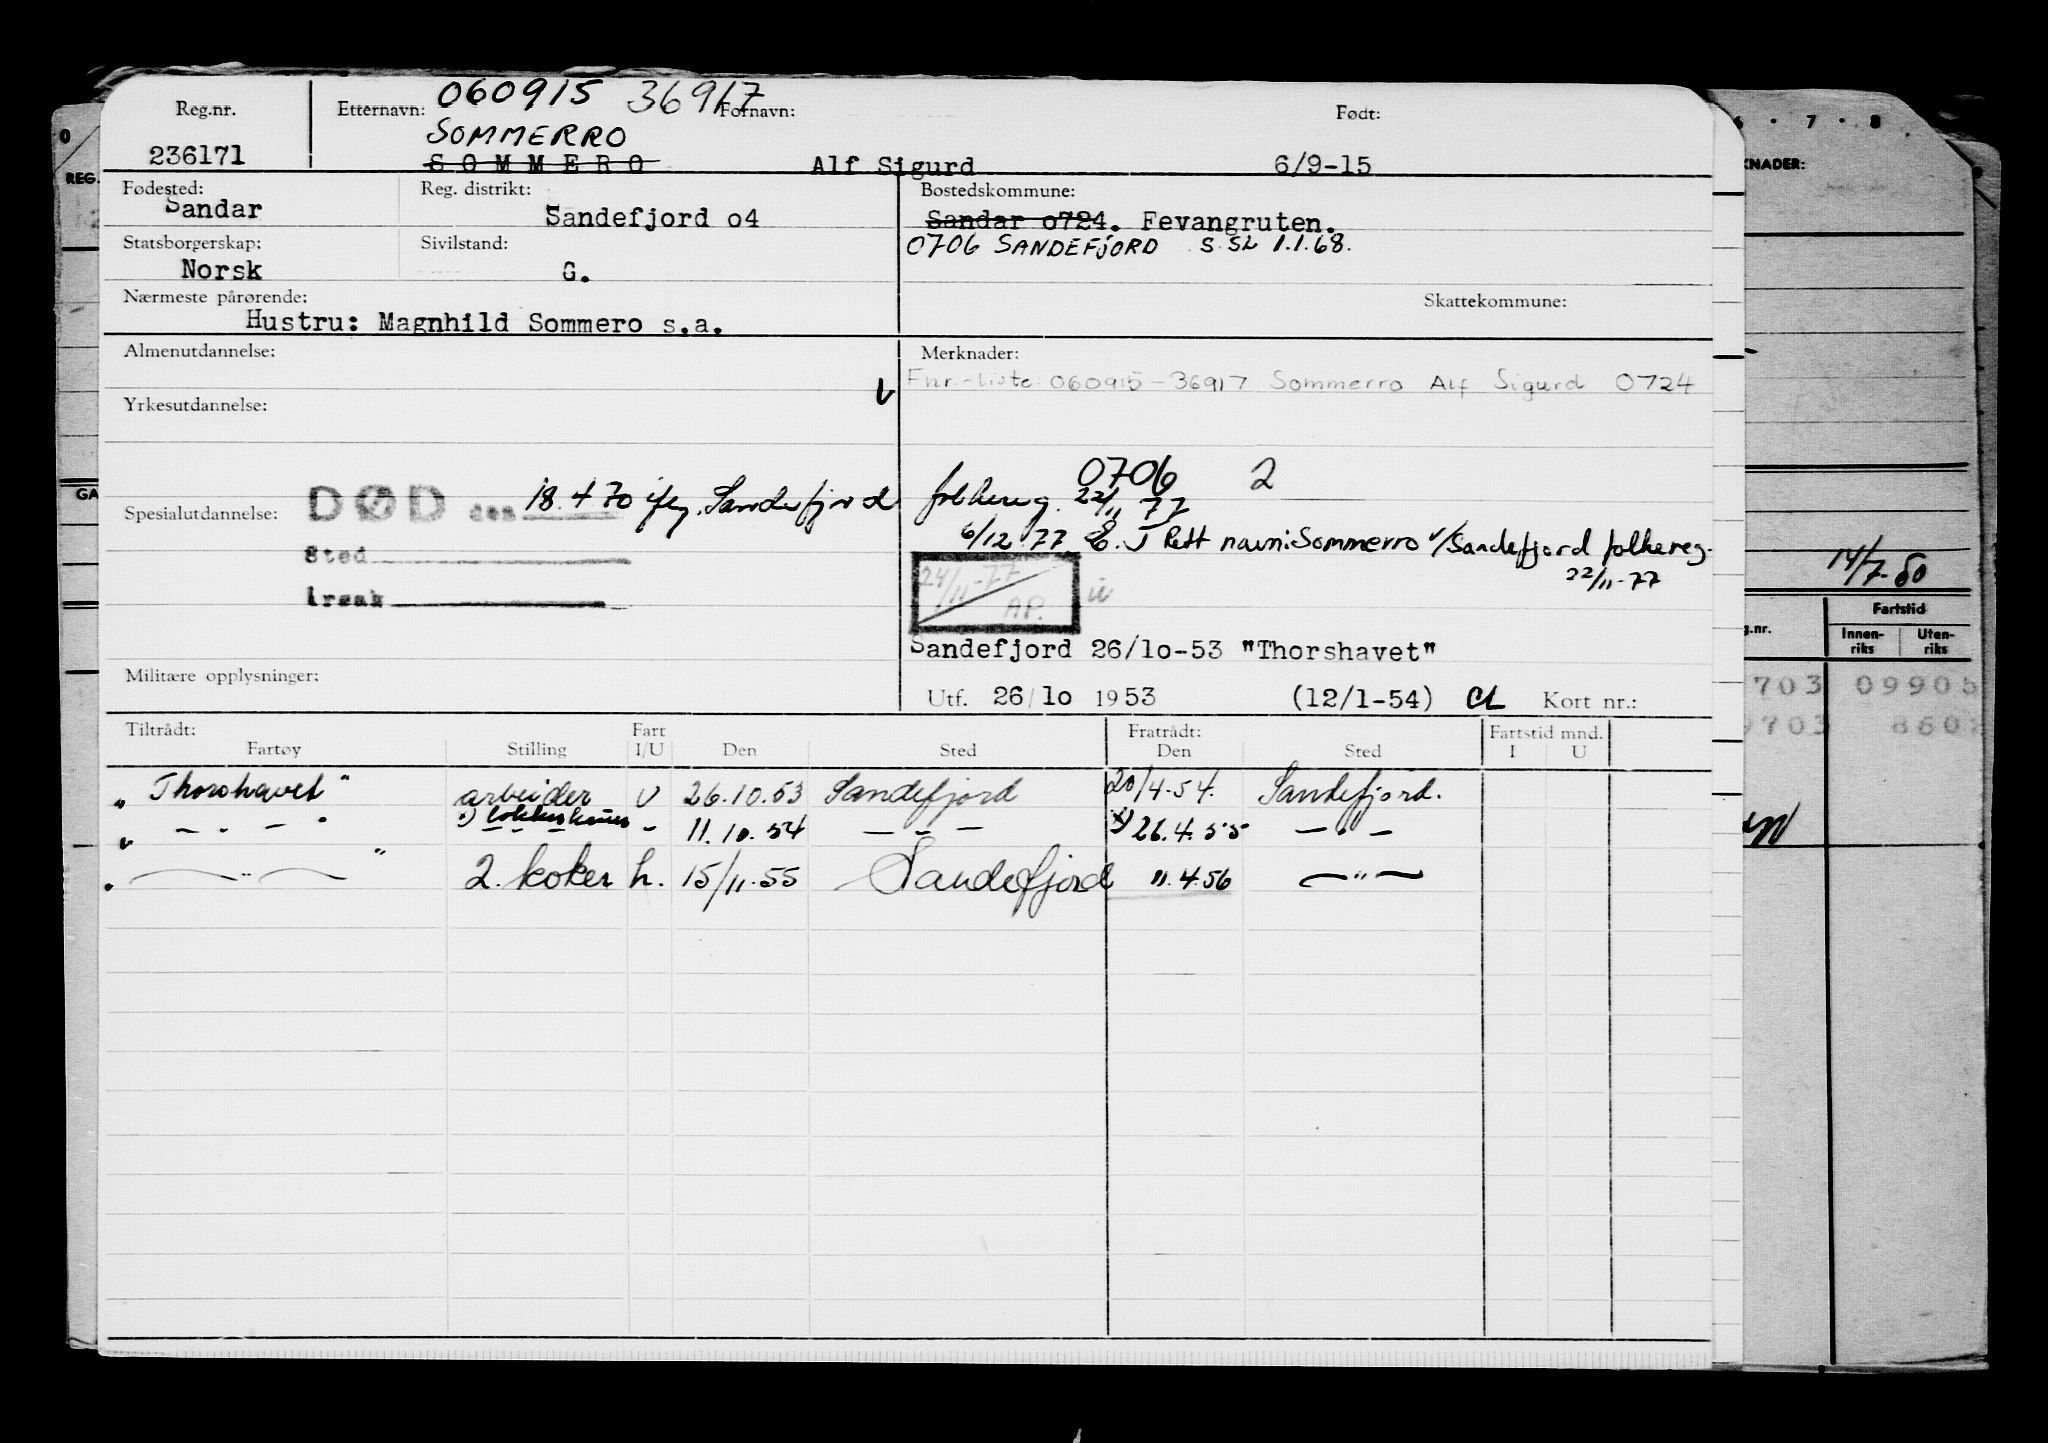 060915 36917
Reg.nr. Etternavn: Fornavn: Født:
SOMMERRO
236171 SOMMERO Alf Sigurd 6/9-15
Fødested: Reg. distrikt: Bostedskommune:
Sandar Sandefjord o4 Sandar o724. Fevangruten.
Statsborgerskap: Sivilstand: 0706 SANDEFJORD S. SL 1.1.68.
Norsk G.
Nærmeste pårørende: Skattekommune:
Hustru: Magnhild Sommero s.a.
Almenutdannelse: Merknader:
Fnr.-liste 060915-36917 Sommerro Alf Sigurd 0724
Yrkesutdannelse:
0706 2
Spesialutdannelse: DØD den 18.4 70 ifлg. Sandefjord folkereg. 22/11 77
6/12.77 E.J Rett navn: Sommerro v/Sandefjord folkereg.
22/11-77
Sted
årsak
24/11-77
AP.
Sandefjord 26/1o-53 "Thorshavet"
Militære opplysninger:
Utf. 26/1o 1953 (12/1-54) CL Kort nr.:
Tiltrådt: Fart Fratrådt: Fartstid mnd.
Fartøy Stilling I/U Den Sted Den Sted I U
"Thorshavet" arbeider U 26.10.53 Sandefjord 20/4.54. Sandefjord.
" - " - " - 11.10.54 - " - 26.4.55 - " -
" - " - " 2. koker h. 15/11.55 Sandefjord 11.4.56 - " -
6 . 7 . 8 .
KNADER:
REG.
GA
14/7-60
Fartstid
g.nr. Innen-riks Uten-riks
703 09905
9703 8602